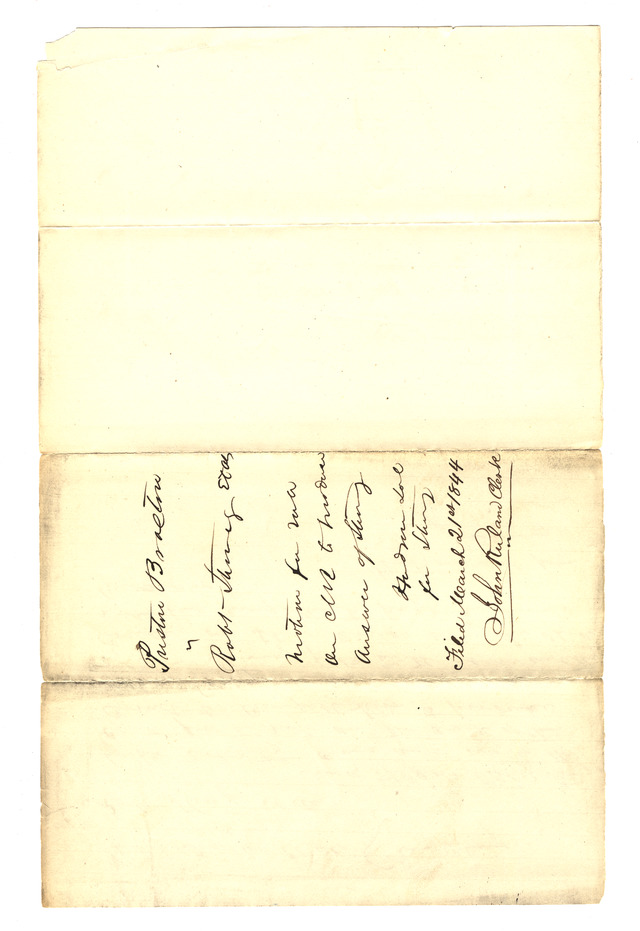 Preston Braxton
vs
Robt Strong &als
Motion for
on to produce
Answer of Strong
Hudson Sol
for Strong
Filed March 21st 1844
John Ruland Clerk